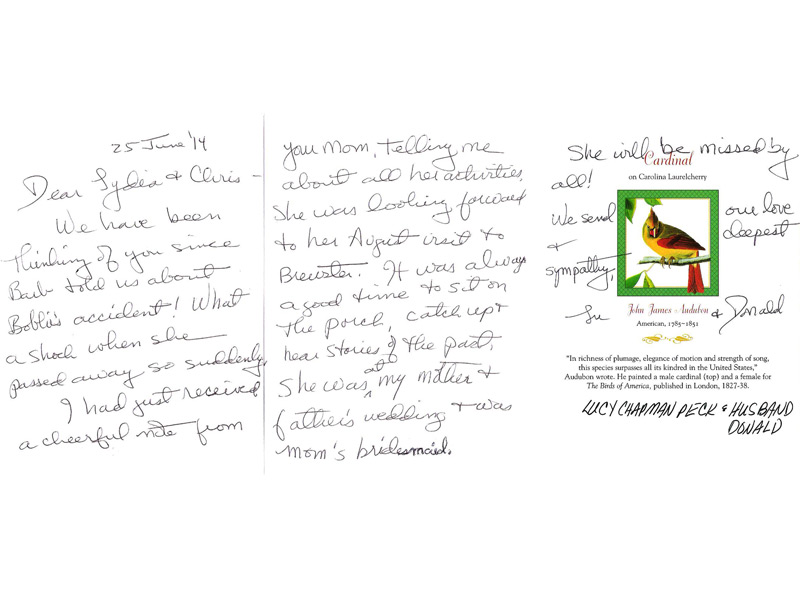 25 June '14
Dear Lydia & Chris -
We have been
thinking of you since
Barb told us about
Bobbie's accident! What
a shock when she
passed away so suddenly.
I had just received
a cheerful note from
you Mom, telling me
about all her activities.
She was looking forward
to her August visit to
Brewster. It was always
a good time to sit on
the porch, catch up &
hear stories of the past.
She was at my mother &
father's wedding & was
Mom's bridesmaid.
She will be missed by
all!
Cardinal
on Carolina Laurelcherry
We send our love
& deepest
sympathy,
Lu & Donald
John James Audubon
American, 1785–1851
"In richness of plumage, elegance of motion and strength of song,
this species surpasses all its kindred in the United States,"
Audubon wrote. He painted a male cardinal (top) and a female for
The Birds of America, published in London, 1827-38.
LUCY CHAPMAN PECK & HUSBAND
DONALD